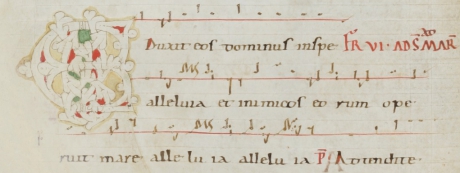 Eduxit eos dominus inspe FR VI · AD S MAR
alleluia et inimicos eo rum ope
ruit mare alle lu ia allelu ia Ps Adtendite